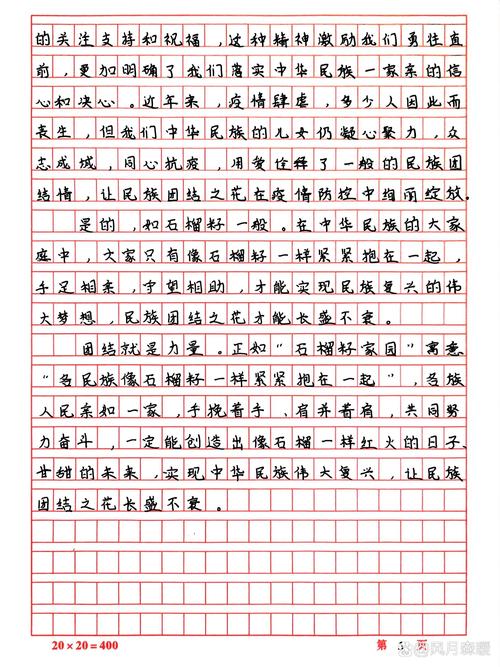 的关注支持和祝福，这种精神激励我们勇往直
前，更加明确了我们落实中华民族一家亲的信
心和决心。近年来，疫情肆虐，多少人因此而
丧生，但我们中华民族的儿女仍凝心聚力，众
志成城，同心抗疫，用爱诠释了一般的民族团
结情，让民族团结之花在疫情防控中绚丽绽放。
是的，如石榴籽一般。在中华民族的大家
庭中，大家只有像石榴籽一样紧紧抱在一起，
手足相亲，守望相助，才能实现民族复兴的伟
大梦想，民族团结之花才能长盛不衰。
团结就是力量。正如“石榴籽家园”寓意
“各民族像石榴籽一样紧紧抱在一起”，各族
人民亲如一家，手挽着手、肩并着肩，共同努
力奋斗，一定能创造出像石榴一样红火的日子、
甘甜的未来，实现中华民族伟大复兴，让民族
团结之花长盛不衰。
20×20=400
第 3 页